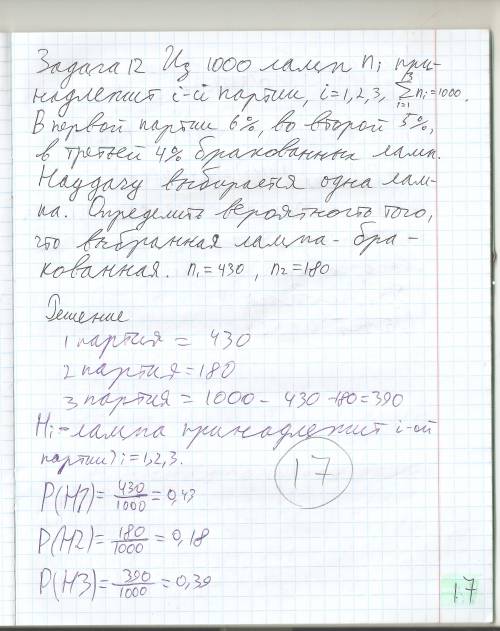 Задача 12 Из 1000 ламп ni при-
надлежит i-ой партии, i=1,2,3, 3∑i=1 ni=1000.
В первой партии 6%, во второй 5%,
в третьей 4% бракованных ламп.
Наудачу выбирается одна лам-
па. Определить вероятность того,
что выбранная лампа - бра-
кованная. n1=430, n2=180
Решение
1 партия = 430
2 партия = 180
3 партия = 1000 - 430 - 180 = 390
Hi - лампа принадлежит i-ой
партии, i=1,2,3.
17
P(H1) = 430/1000 = 0,43
P(H2) = 180/1000 = 0,18
P(H3) = 390/1000 = 0,39
17